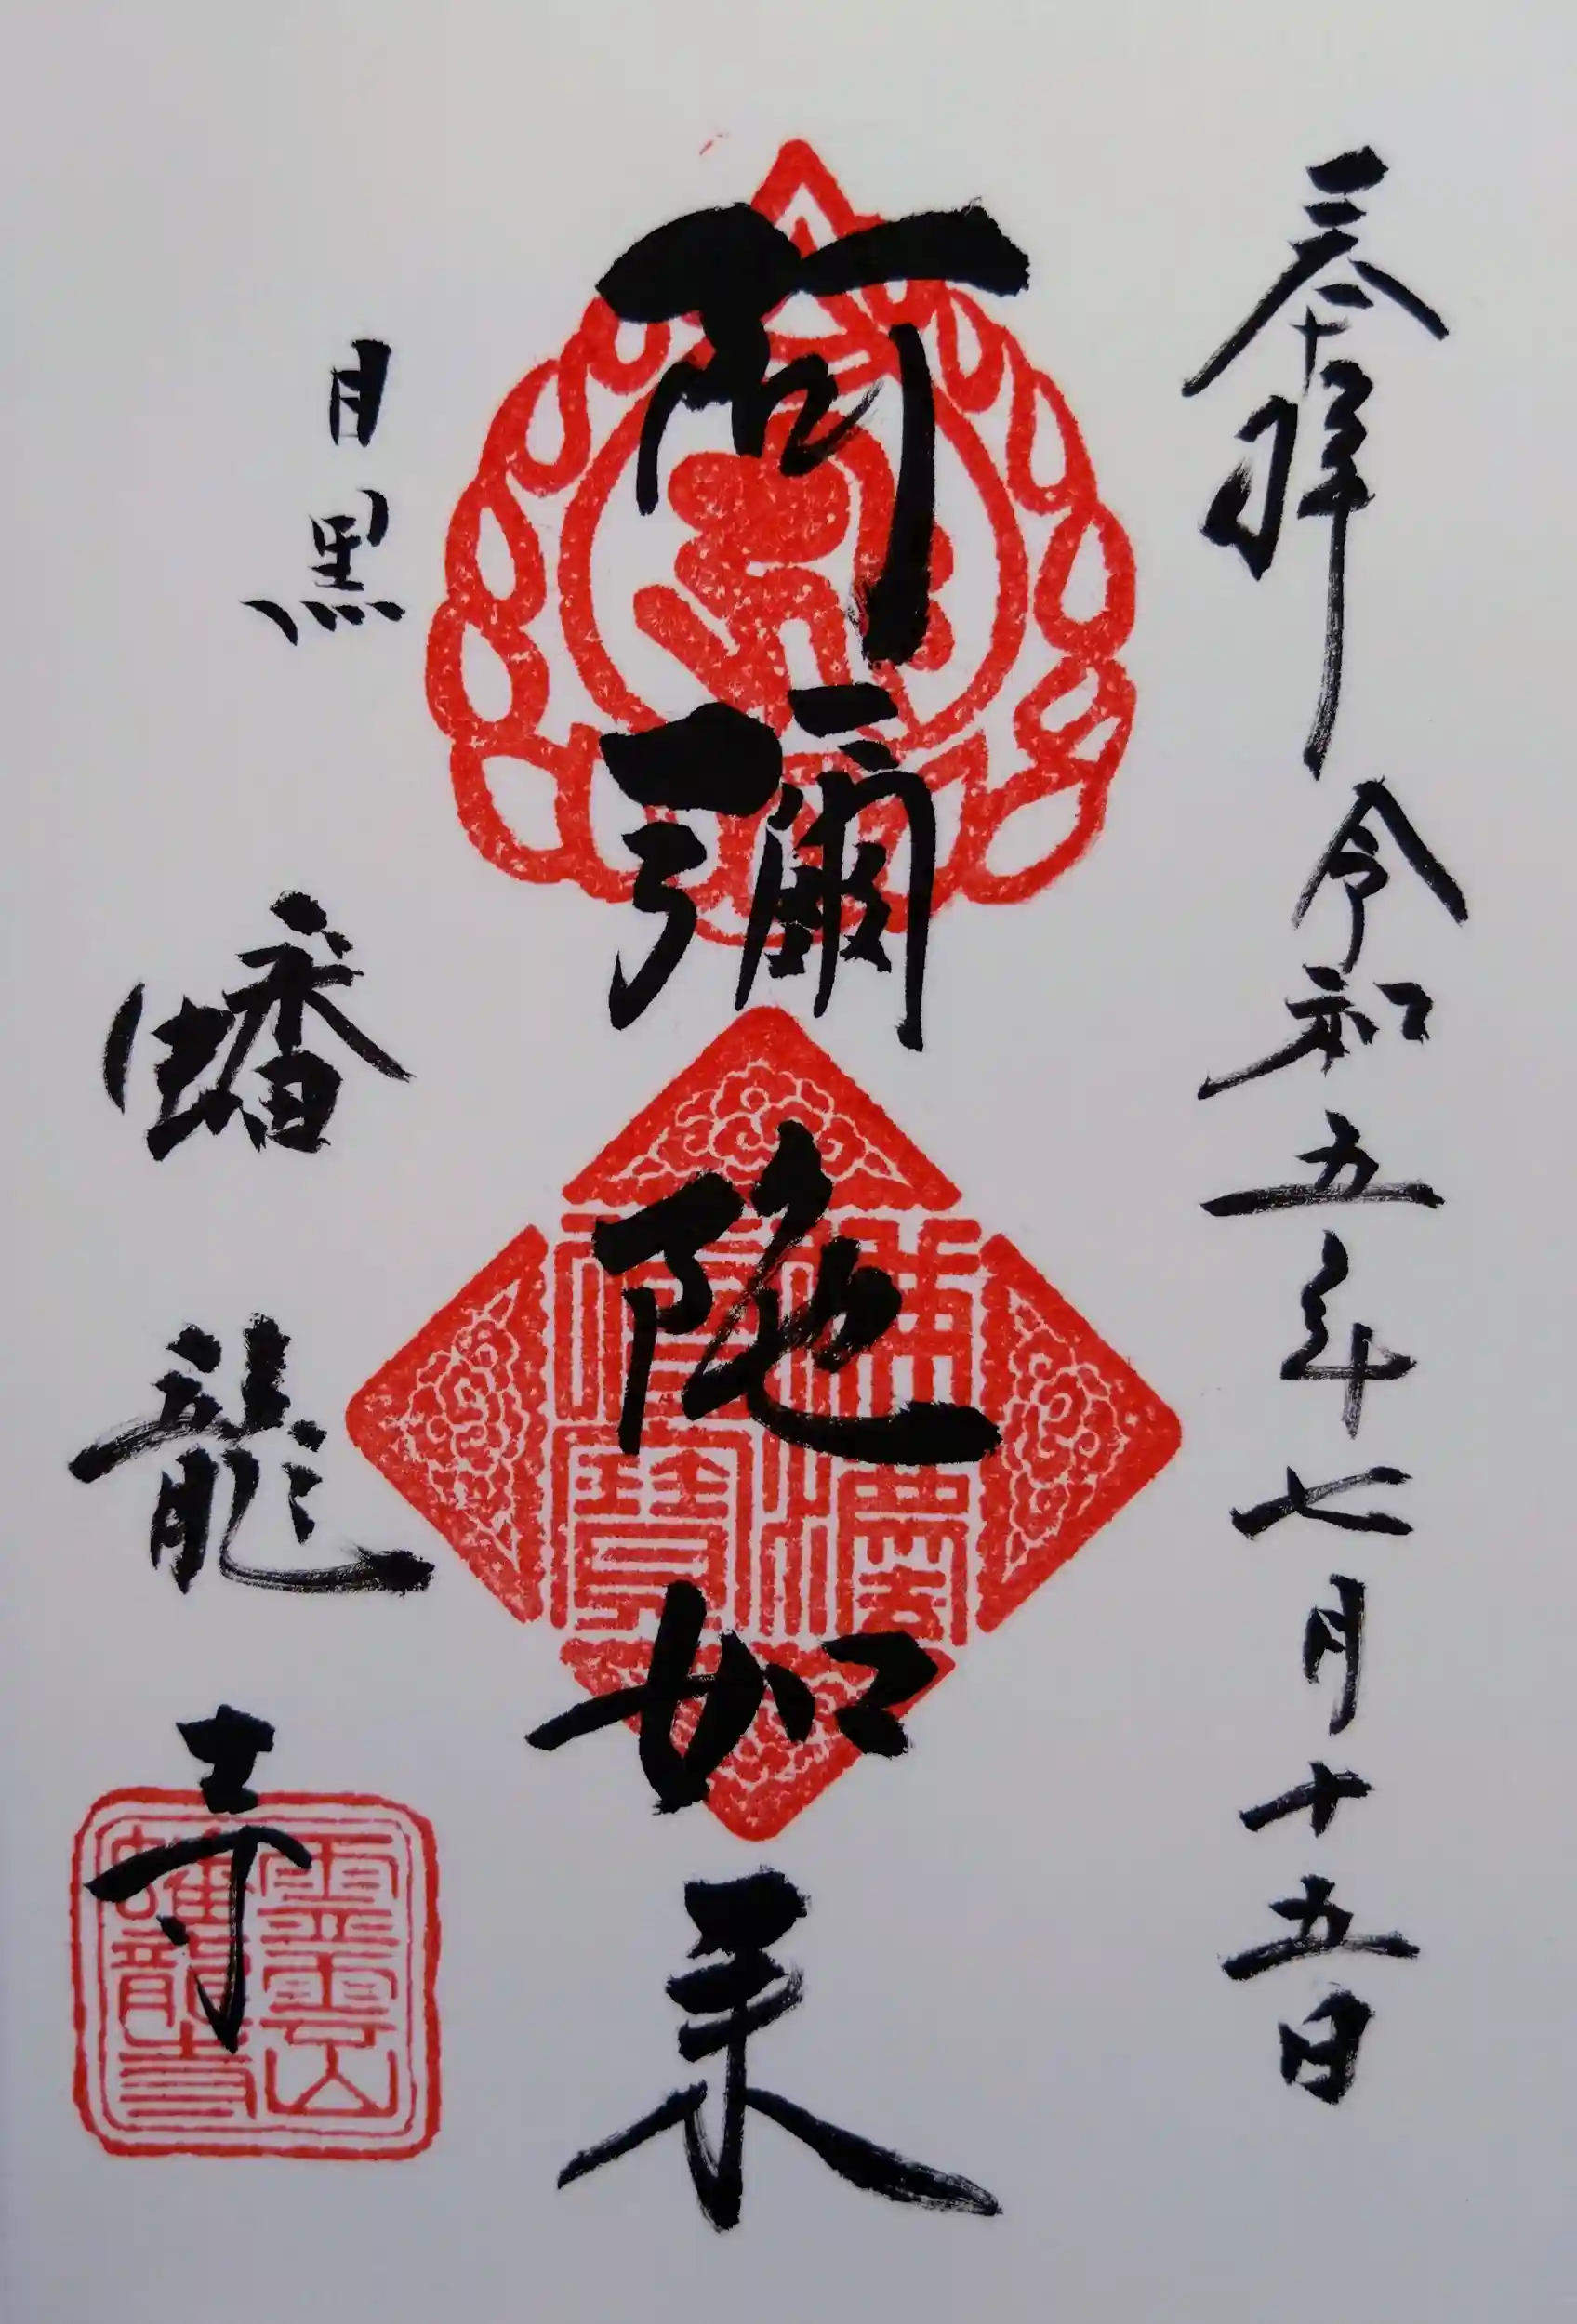 奉拝 令和五年七月十五日
阿彌陀如来
目黒 蟠龍寺
霊雲山
蟠龍寺